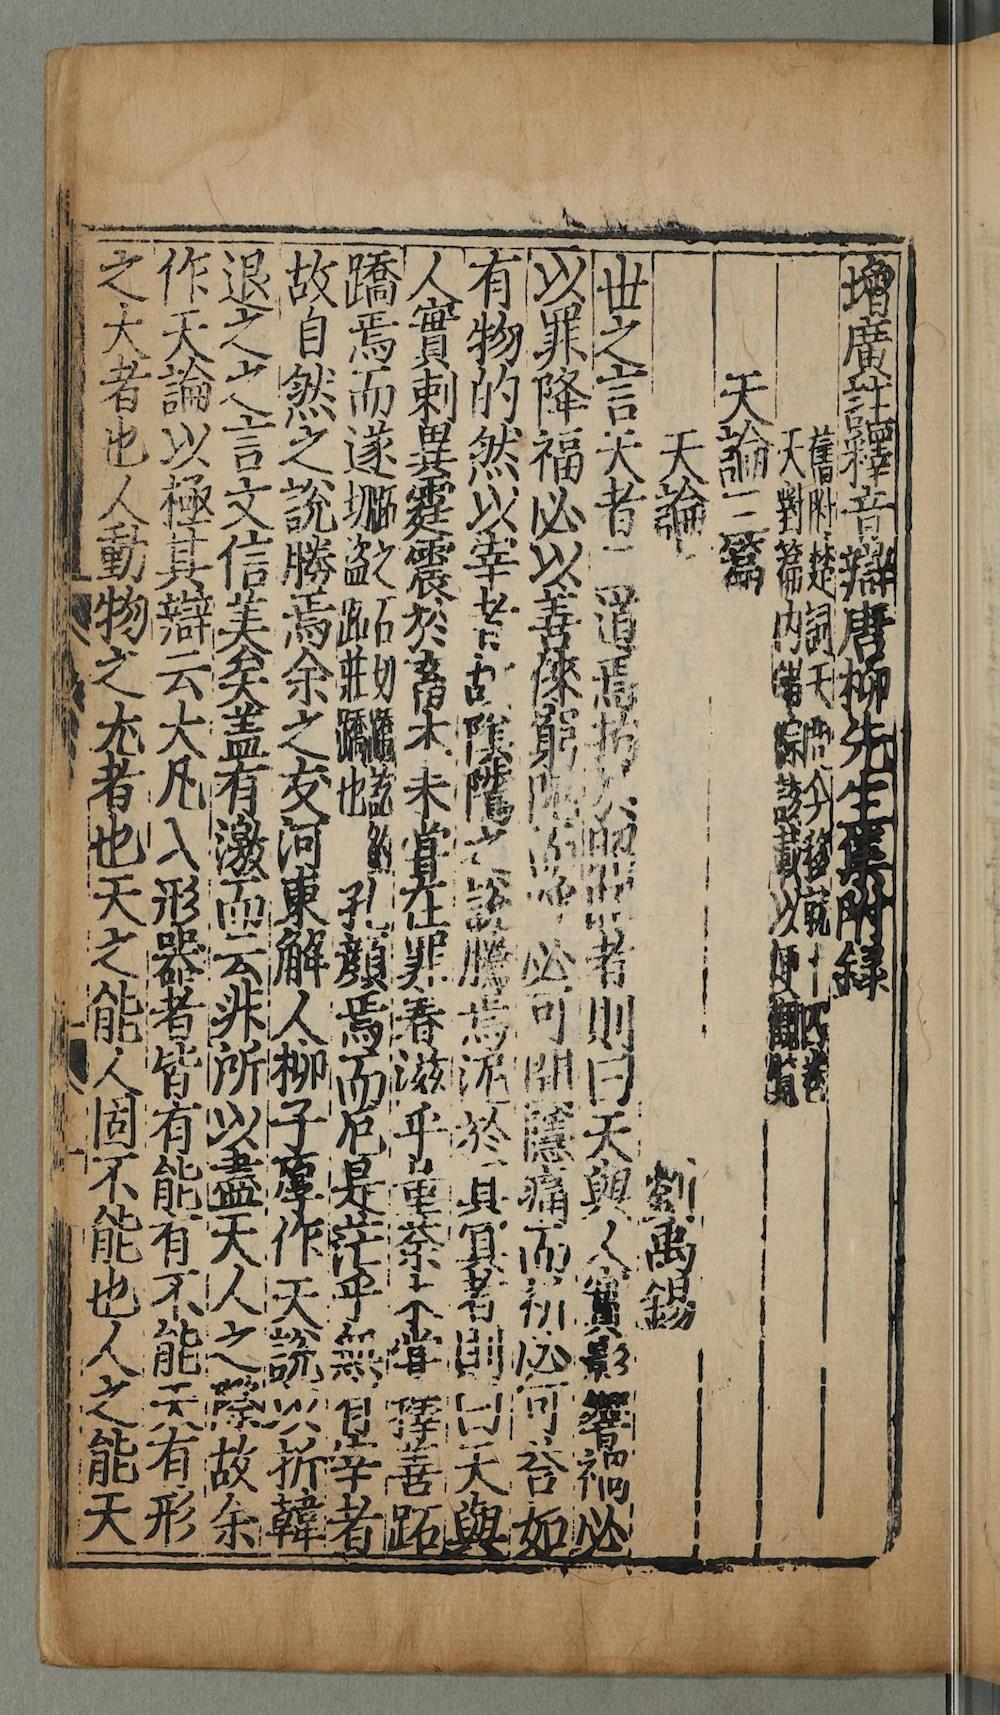 增廣註釋音辯唐柳先生集附録
舊附楚詞天問今移就十四卷
天對篇内當除該載以便觀覽
天論三篇
天論上 劉禹錫
世之言天者二道焉拘於昭昭者則曰天與人實影響禍必
以罪降福必以善俫窮阨而呼必可聞隱痛而祈必可荅如
有物的然以宰者故陰隲之說騰焉泥於冥冥者則曰天與
人實剌異霆震於畜木未嘗在罪春滋乎堇荼未嘗擇善跖
蹻焉而遂
跖之石切蹻訖約
切盜跖莊蹻也
孔顏焉而厄是茫乎無有宰者
故自然之說勝焉余之友河東解人柳子厚作天說以折韓
退之之言文信美矣盖有激而云非所以盡天人之際故余
作天論以極其辯云大凡入形器者皆有能有不能天有形
之大者也人動物之尤者也天之能人固不能也人之能天